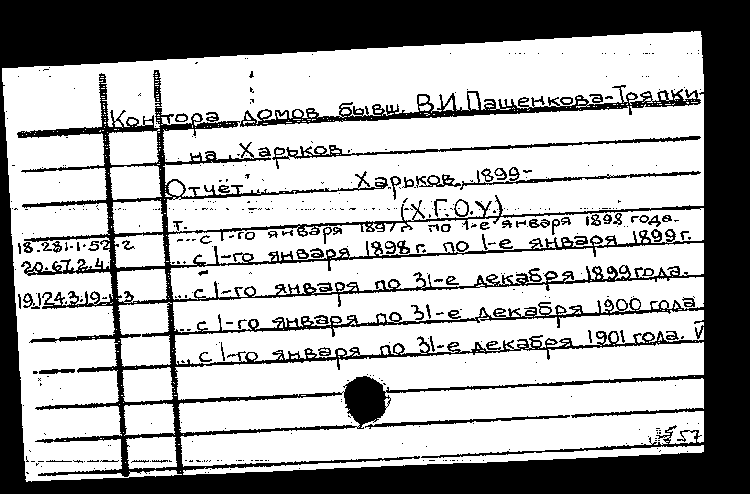 Контора домов бывш. В.И.Пащенкова-Тряпки-
на. Харьков.
Отчёт ......... Харьков, 1899-
(Х.Г.О.У.)
т.
18.281.1.52-2 ... с 1-го января 1897 г. по 1-е января 1898 года.
20.67.2.4. ... с 1-го января 1898 г. по 1-е января 1899 г.
19.124.3.19-1-3 ... с 1-го января по 31-е декабря 1899 года.
... с 1-го января по 31-е декабря 1900 года
... с 1-го января по 31-е декабря 1901 года. V
№ 57